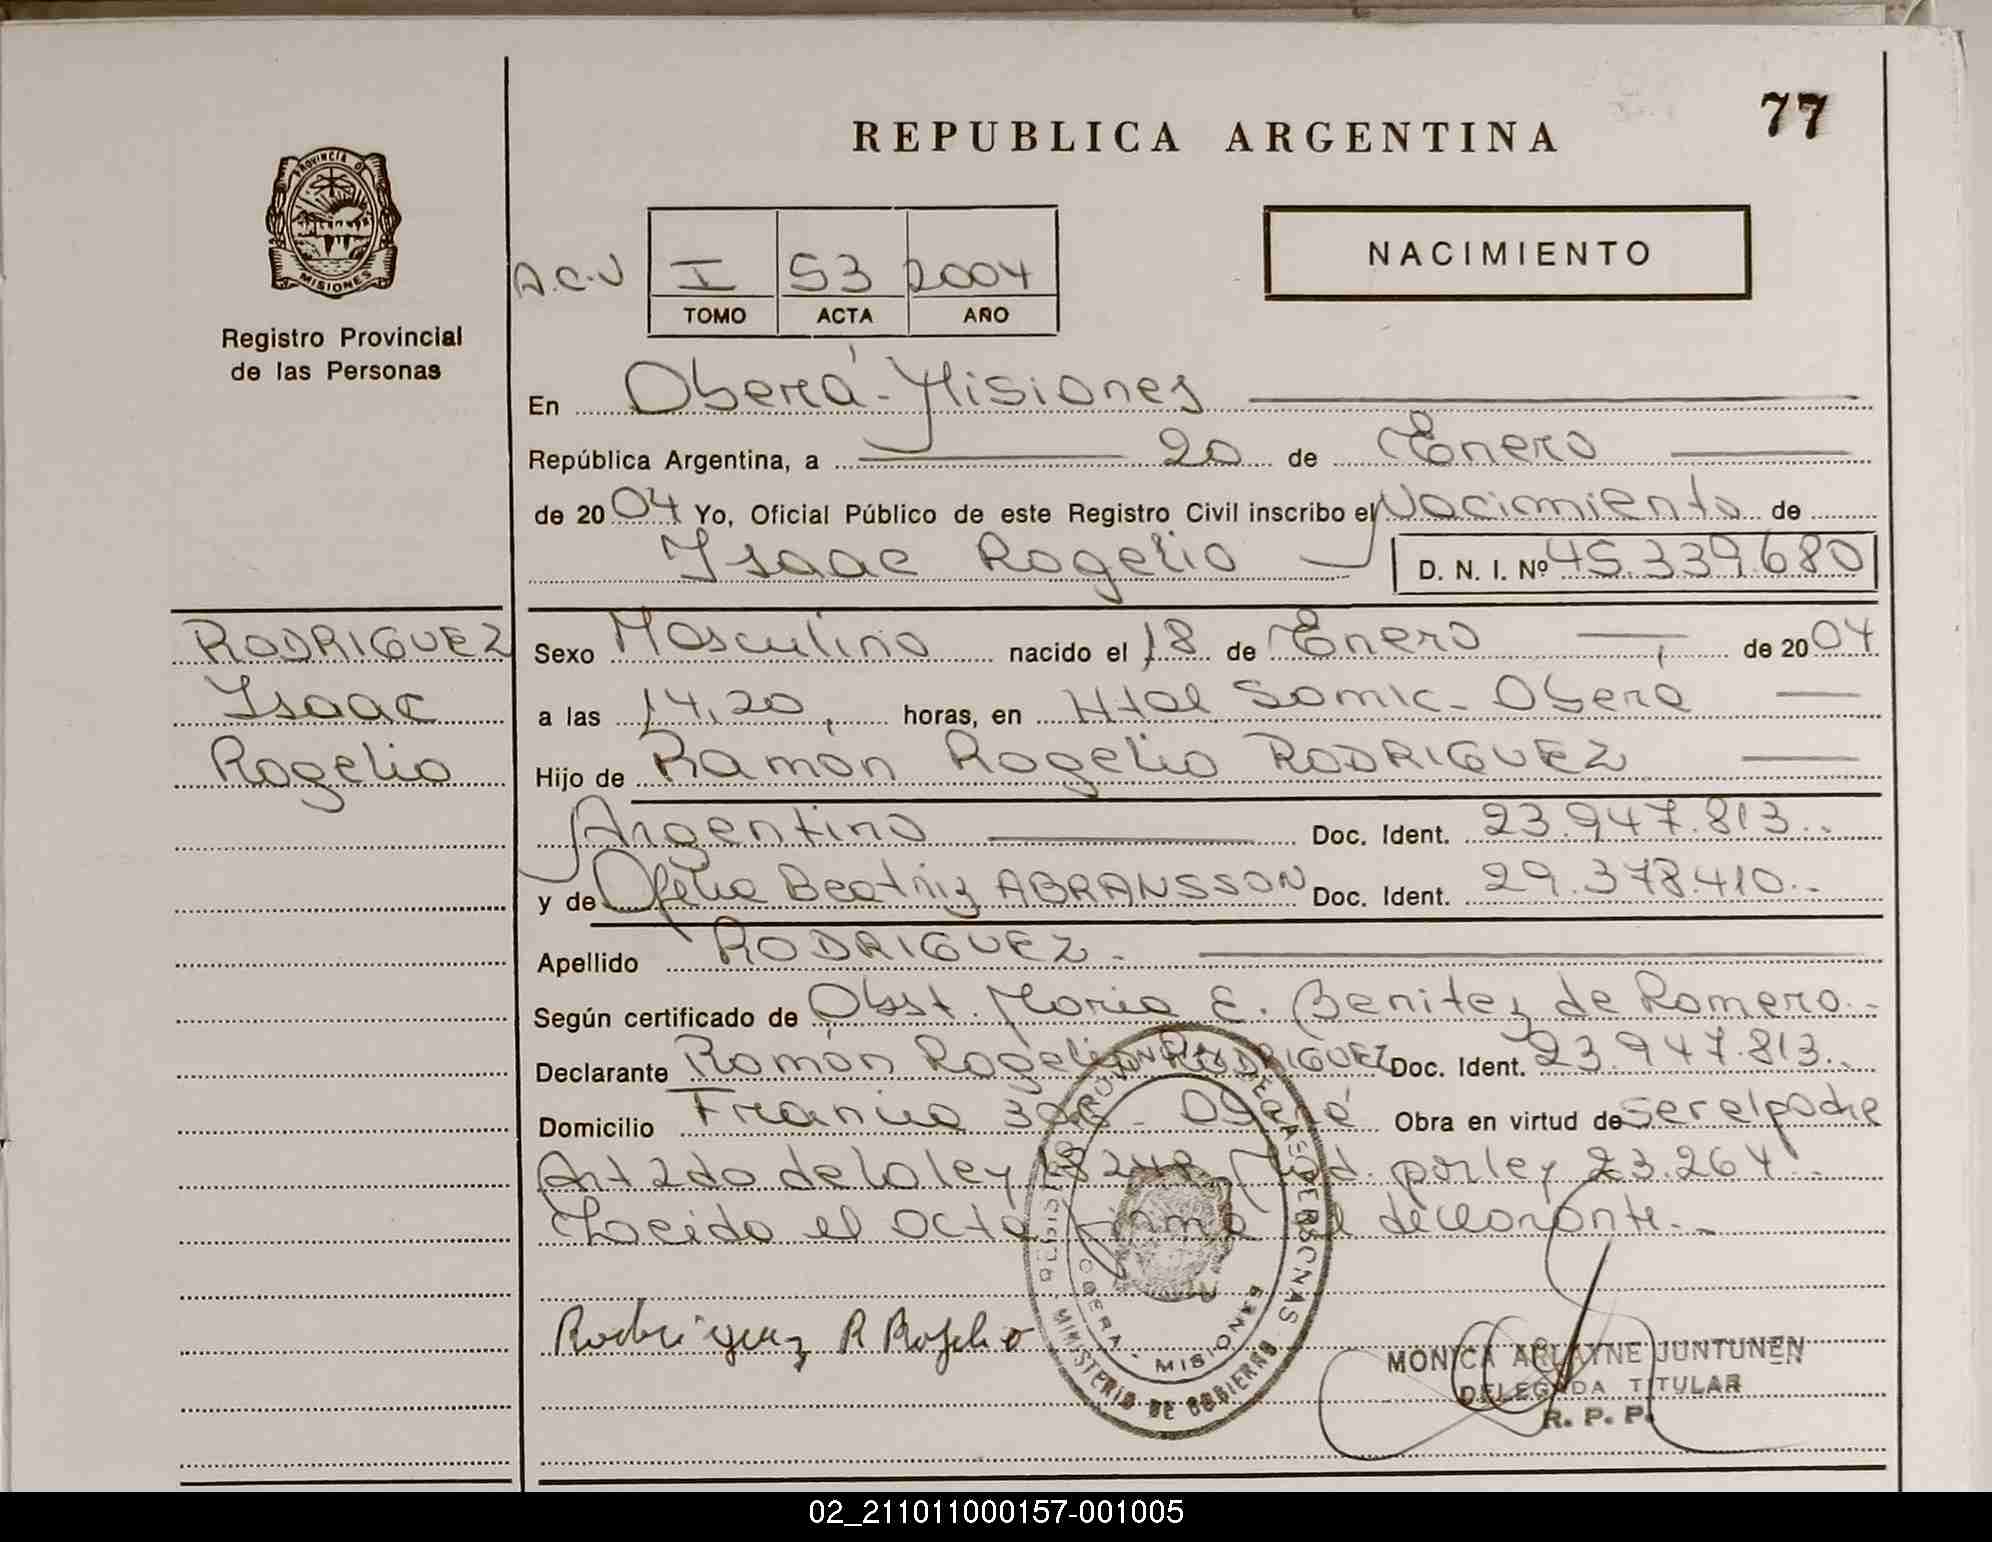 77
REPUBLICA ARGENTINA
PROVINCIA DE
MISIONES
Registro Provincial
de las Personas
A.C.V I 53 2004
TOMO ACTA AÑO
NACIMIENTO
En Oberá - Misiones
República Argentina, a 20 de Enero
de 2004 Yo, Oficial Público de este Registro Civil inscribo el Nacimiento de
Isaac Rogelio D. N. I. Nº 45.339.680
RODRIGUEZ
Isaac
Rogelio
Sexo Masculino nacido el 18 de Enero de 2004
a las 14,20, horas, en Htal Samic - Oberá
Hijo de Ramón Rogelio RODRIGUEZ
Argentino Doc. Ident. 23.947.813.-
y de Ofelia Beatriz ABRANSSON Doc. Ident. 29.378.410.-
Apellido RODRIGUEZ.-
Según certificado de Obst. Maria E. Benitez de Romero.-
Declarante Ramón Rogelio RODRIGUEZ Doc. Ident. 23.947.813.-
Domicilio Francia - Oberá Obra en virtud de ser el padre
Art 2do de la ley 18.248 Mod. por ley 23.264.-
Leido el acta, firma el declarante.-
Rodriguez R Rogelio
MINISTERIO DE GOBIERNO
OBERA - MISIONES
MONICA JUNTUNEN
DELEGADA TITULAR
R. P. P.
02_211011000157-001005